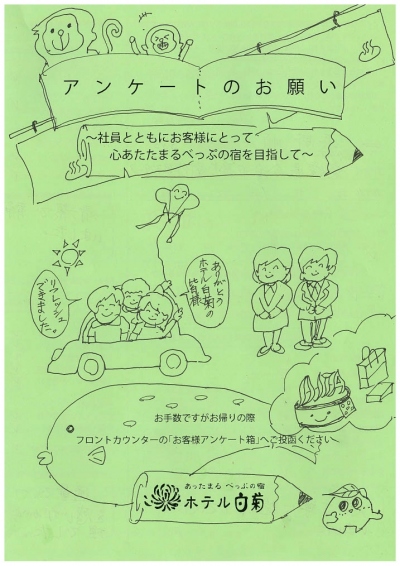 アンケートのお願い
～社員とともにお客様にとって
心あたたまるべっぷの宿を目指して～
ありがとう
ホテル白菊の
皆様
リフレッシュ
できました。
お手数ですがお帰りの際
フロントカウンターの「お客様アンケート箱」へご投函ください
あったまる べっぷの宿
ホテル白菊